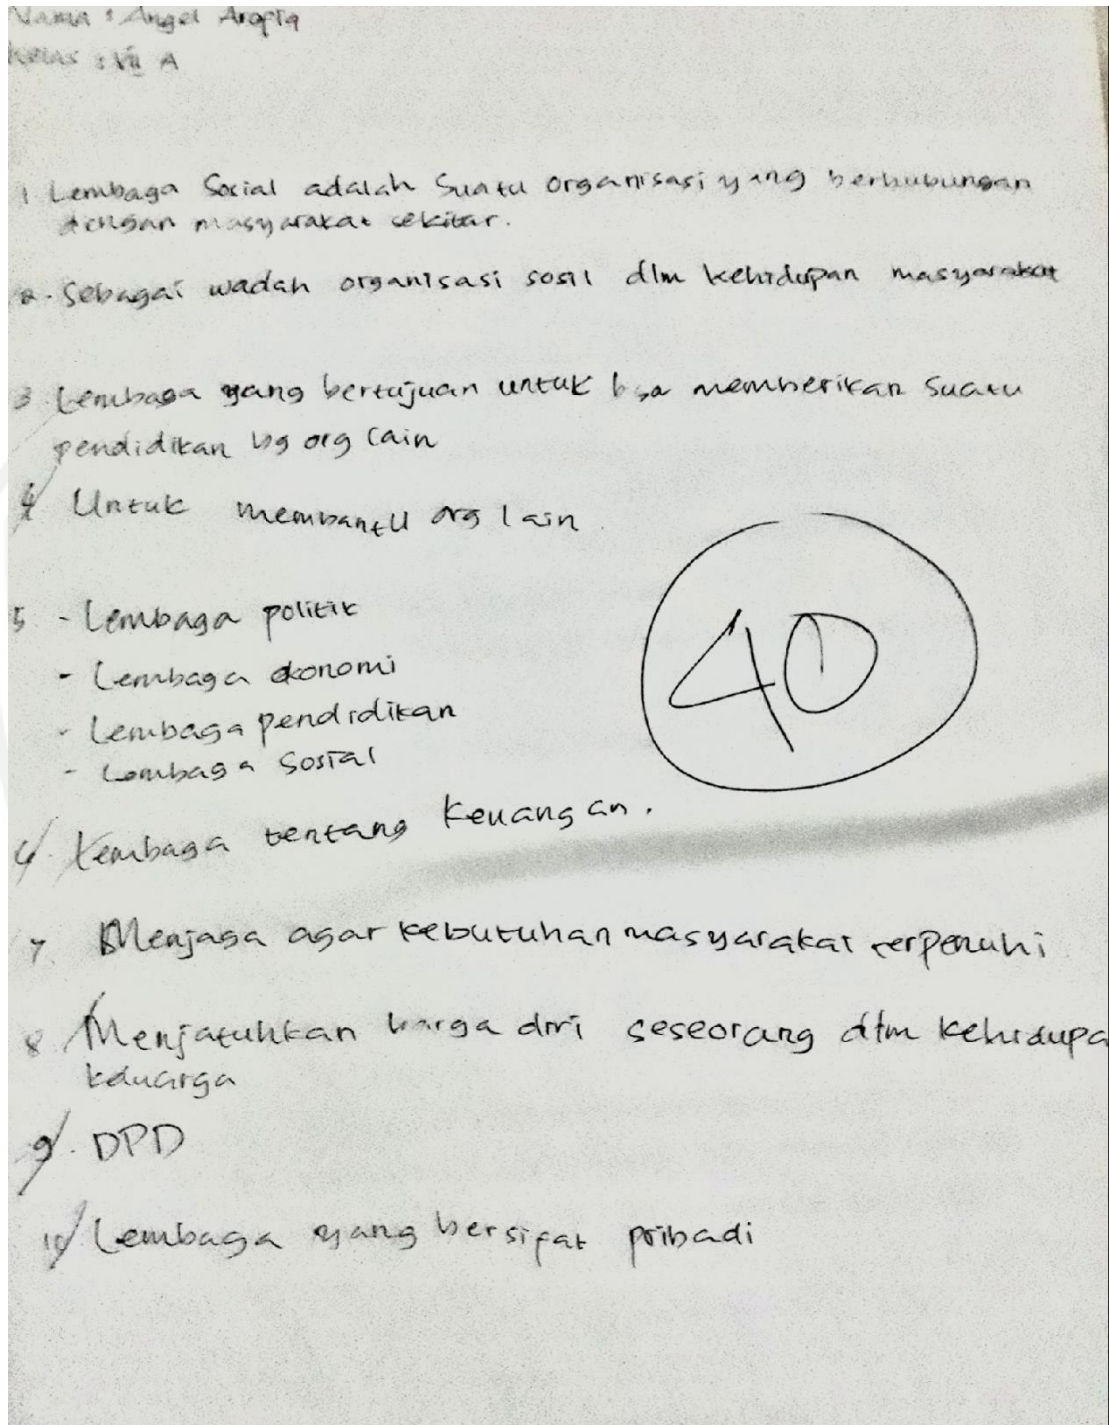 Nama : Angel Aropiq
Kelas : VII A
1 Lembaga Social adalah Suatu organisasi yang berhubungan
dengan masyarakat sekitar.
2. Sebagai wadah organisasi sosil dlm kehidupan masyarakat
3 Lembaga yang bertujuan untuk bsa memberikan suatu
pendidikan bg org lain
4 Untuk membantu org lain
40
5 - Lembaga politik
- Lembaga ekonomi
- Lembaga pendidikan
- Lembaga Sosial
6. Lembaga tentang Keuangan.
7. Menjaga agar kebutuhan masyarakat terpenuhi
8 Menjatuhkan harga diri seseorang dlm kehidupa
keluarga
9. DPD
10 Lembaga yang bersifat pribadi